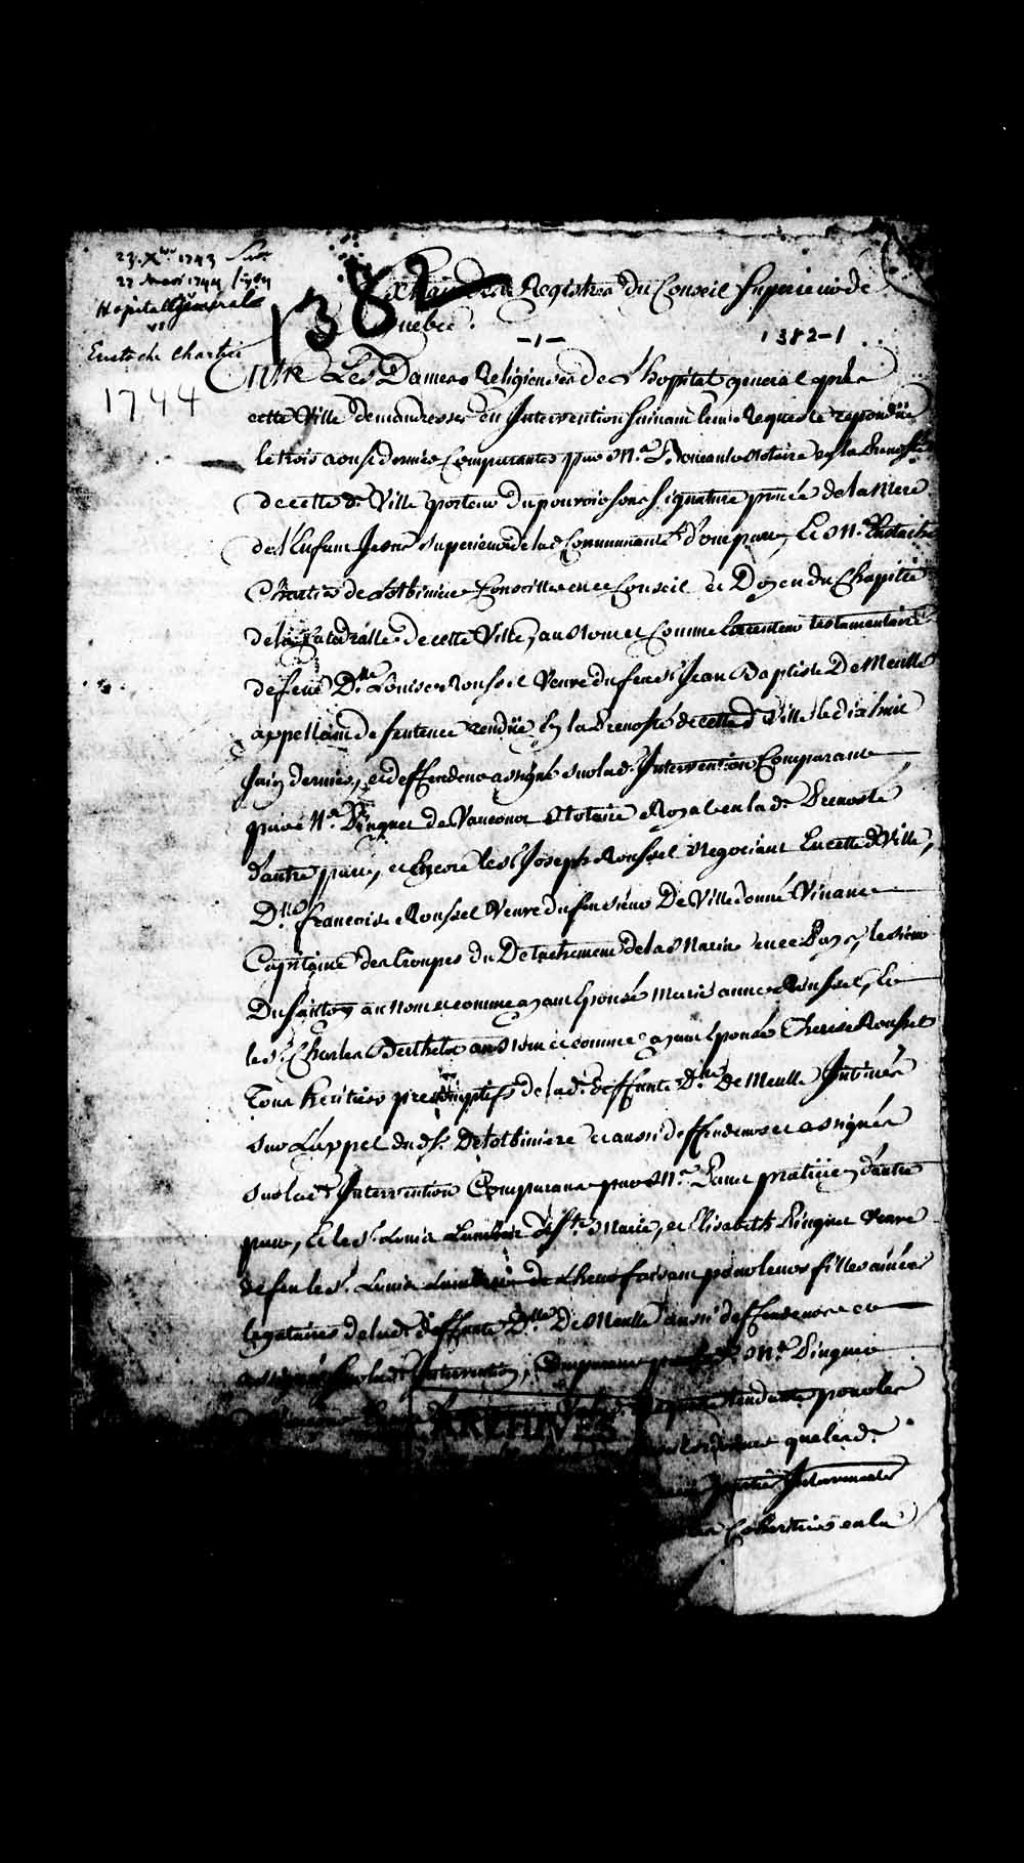 23. Xbre 1743
27 Mars 1744
Hopital General
vs
Eustache Chartier
1744
1382
Extrait des Registres du Conseil Superieur de
Quebec.
-1-
1382-1
Entre Les Dames Religieuses de L'hopital general près
cette Ville demanderesses en Intervention suivant leur Requeste repondüe
le trois aoust dernier Comparantes par Me. Notaire en la Prevosté
de cette de. Ville porteur du pouvoir sous signature privée de la Mere
de l'Enfant Jesus superieure de lad. Communauté d'une part, Et Me. Eustache
Chartier de Lotbiniere Conseiller en ce Conseil et Doyen du Chapitre
de la Catedralle de cette Ville, au Nom et Comme Executeur testamentaire
de feue Dlle. Louise Roussel Veuve du feu Sr. Jean Baptiste De Meulle
appellant de sentence rendüe En la Prevosté de cette d. Ville le dix huit
Juin dernier, et deffendeur assigné sur lad. Intervention Comparant
par Me. Pinguet de Vaucour Notaire Royal en la de. Prevosté
d'autre part, et Encore le Sr. Joseph Roussel Negociant En cette de. Ville,
Dlle. francoise Roussel Veuve du feu sieur De Villedonné Vivant
Capitaine des Troupes du Detachement de la Marine en ce Pays, le sieur
au nom et comme ayant Epousé Marie anne Roussel, Et
le Sr. Charles Berthelot au Nom et comme ayant Epousé Therese Roussel
Tous heritiers presomptifs de lad. deffunte Dlle. De Meulle Intimés
sur L'appel dud. Sr. De Lotbiniere et aussi deffendeurs et assignés
sur lad. Intervention Comparant par Me. Panet praticien d'autre
part, Et le Sr. Louis Lambert Ste. Marie, et Elisabeth Pinguet Veuve
de feu le Sr. Louis Lambert faisant pour leurs filles ainées
legataires de lad. deffunte Dlle. De Meulle aussi deffendeurs et
assignés sur lad. Intervention, Comparant par Me. Pinguet
Requeste tendante pour les
ARCHIVES
que led.
partie Intervenante
Coheritiers en la